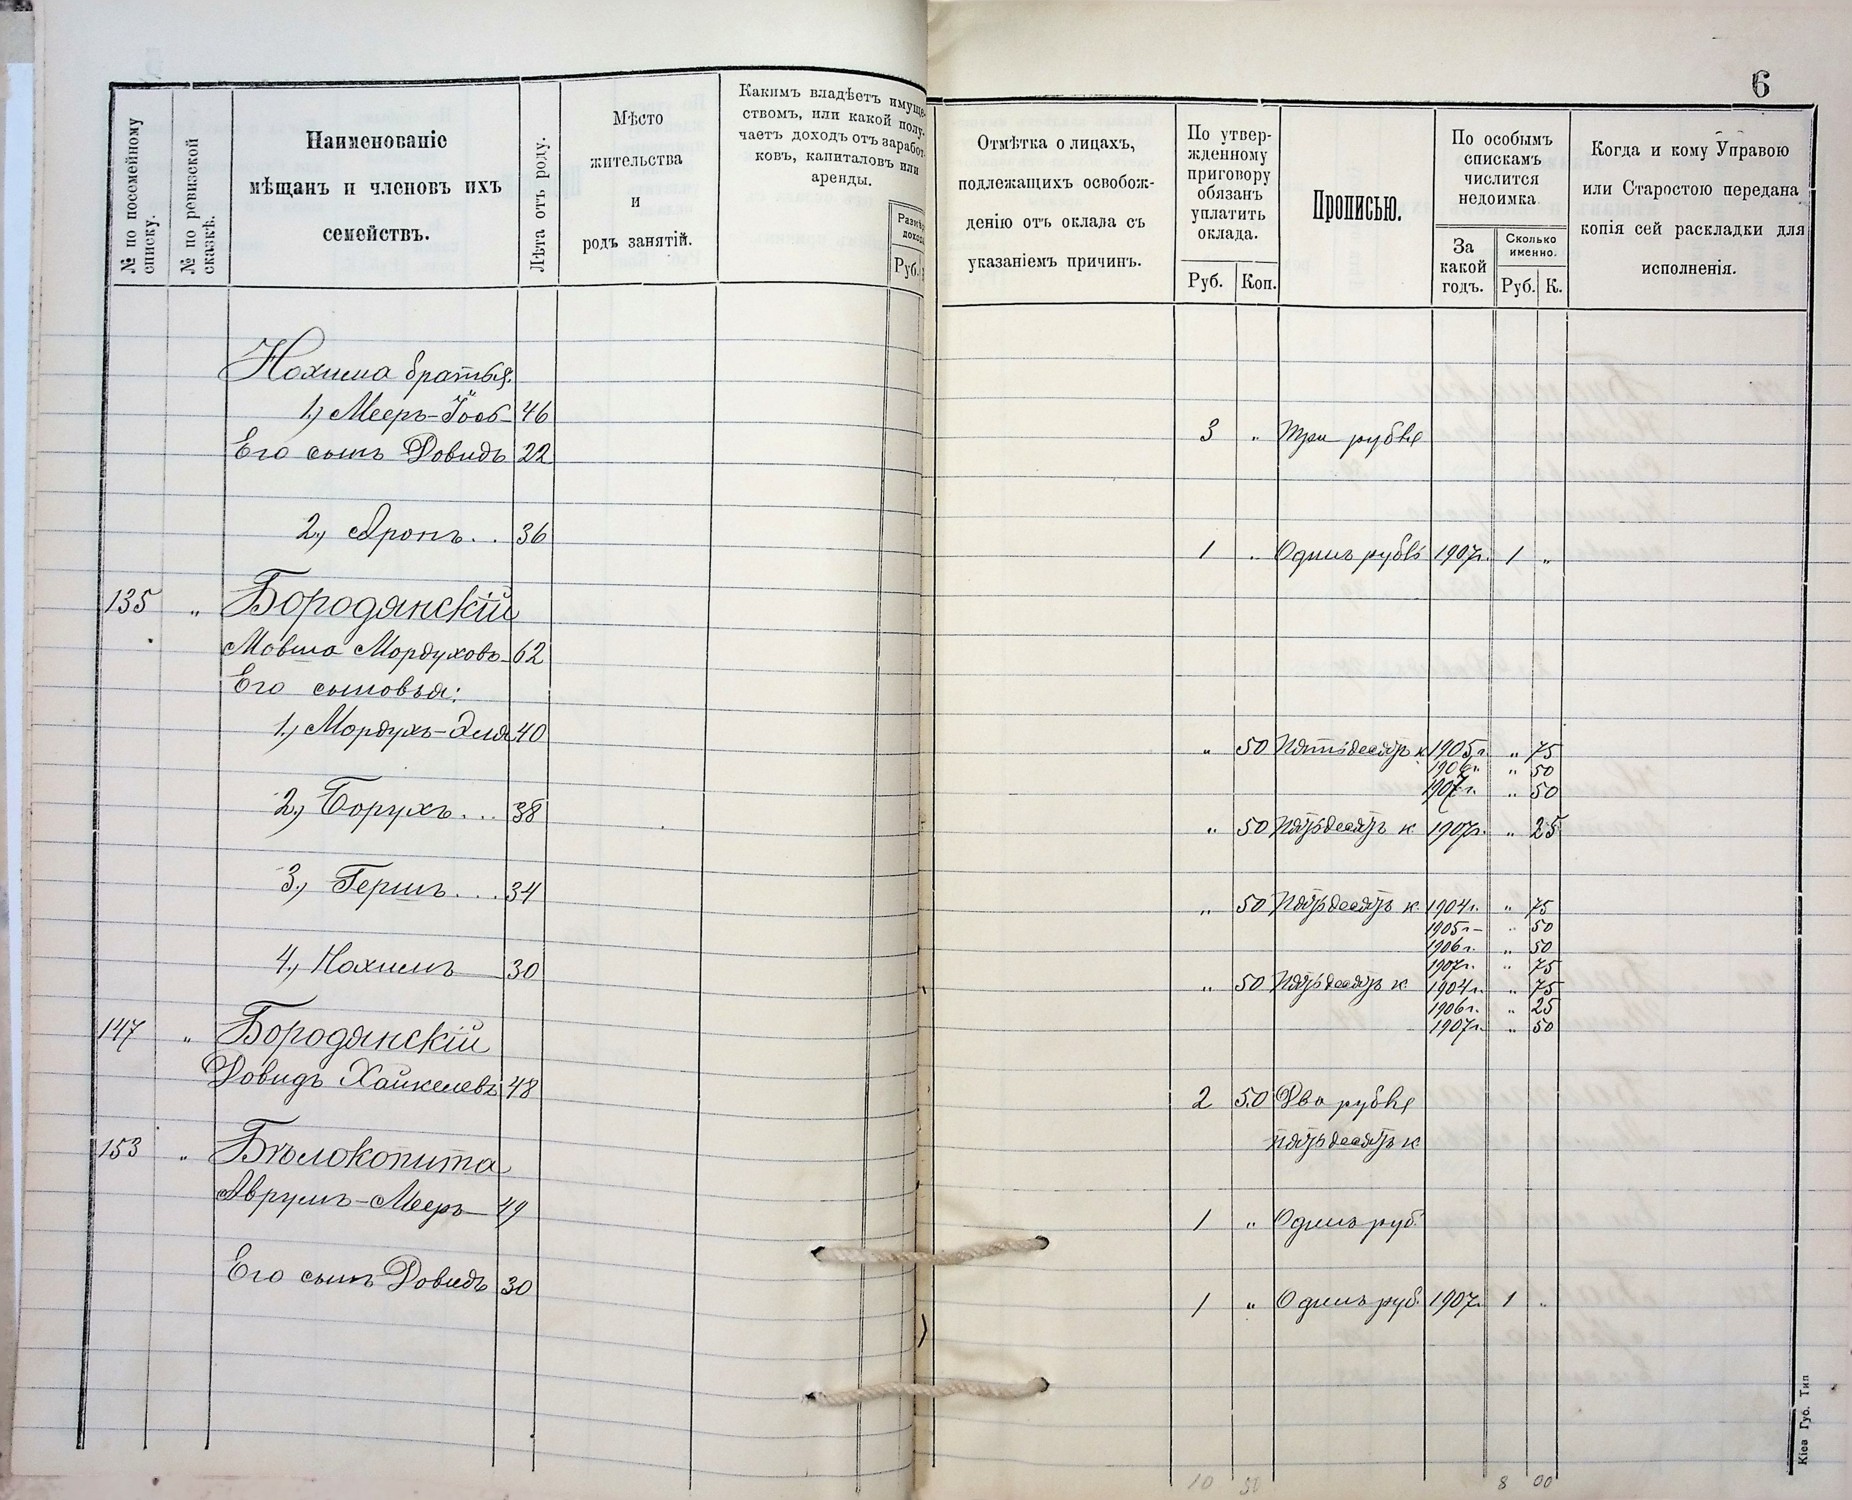 6
№ по посемейному списку.
№ по ревизской сказкѣ.
Наименованіе
мѣщанъ и членовъ ихъ
семействъ.
Лѣта отъ роду.
Мѣсто
жительства
и
родъ занятій.
Какимъ владѣетъ имуще-
ствомъ, или какой полу-
чаетъ доходъ отъ заработ-
ковъ, капиталовъ или
аренды.
Размѣръ
дохода
Руб.
Отмѣтка о лицахъ,
подлежащихъ освобож-
денію отъ оклада съ
указаніемъ причинъ.
По утвер-
жденному
приговору
обязанъ
уплатить
оклада.
Руб. Коп.
Прописью.
По особымъ
спискамъ
числится
недоимка
За
какой
годъ.
Сколько
именно.
Руб. К.
Когда и кому Управою
или Старостою передана
копія сей раскладки для
исполненія.
Нохима братья.
1.) Мееръ-Іосъ- 46
Его сынъ Довидъ 22 3 „ Три рубля
2.) Аронъ.. 36 1 „ Одинъ рубль 1907г. 1 „
135 „ Бородянскій
Мовша Мордуховъ- 62
Его сыновья:
1.) Мордухъ-Эля 40 „ 50 Пятьдесятъ к 1905г. „ 75
1906„ „ 50
1907г. „ 50
2.) Борухъ... 38 „ 50 Пятьдесятъ к 1907г. „ 25
3.) Гершъ... 34 „ 50 Пятьдесятъ к 1904г. „ 75
1905г- „ 50
1906г. „ 50
1907г. „ 75
4.) Нохимъ 30 „ 50 Пятьдесятъ к 1904г. „ 75
1906г. „ 25
1907г. „ 50
147 „ Бородянскій
Довидъ Хайкелевъ 48 2 50 Два рубля
пятьдесятъ к
153 „ Бѣлокопита
Аврумъ-Мееръ- 49 1 „ Одинъ руб.
Его сынъ Довидъ 30 1 „ Одинъ руб. 1907г. 1 „
10 50 8 00
Кіев Губ. Тип